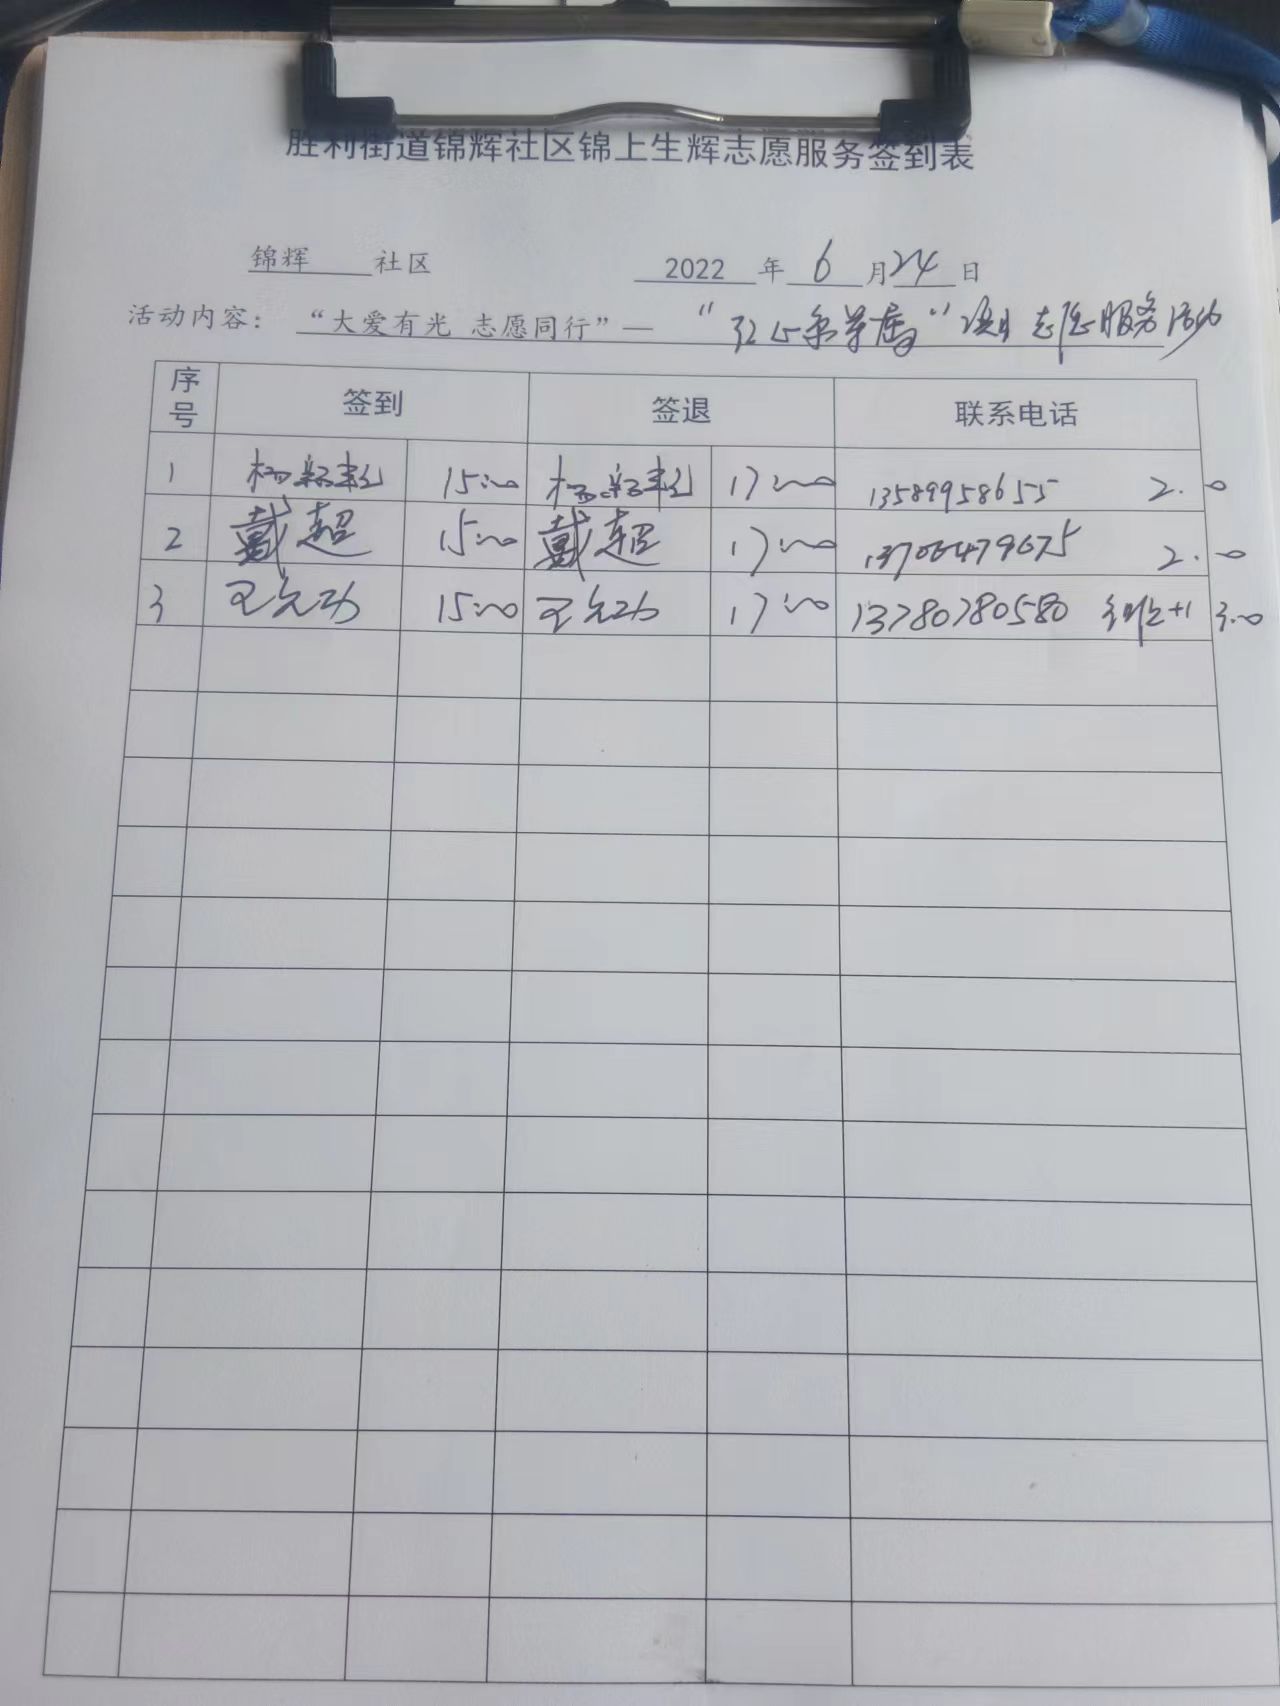 胜利街道锦辉社区锦上生辉志愿服务签到表
锦辉 社区 2022 年 6 月 24 日
活动内容： “大爱有光 志愿同行”— “红心 ”项目 志愿服务活动
序号 签到 签退 联系电话
1 杨 15:00 杨 17:00 13589958655 2.0
2 戴超 15:00 戴超 17:00 13706479675 2.0
3 王 15:00 王 17:00 13780780580 +1 3.0